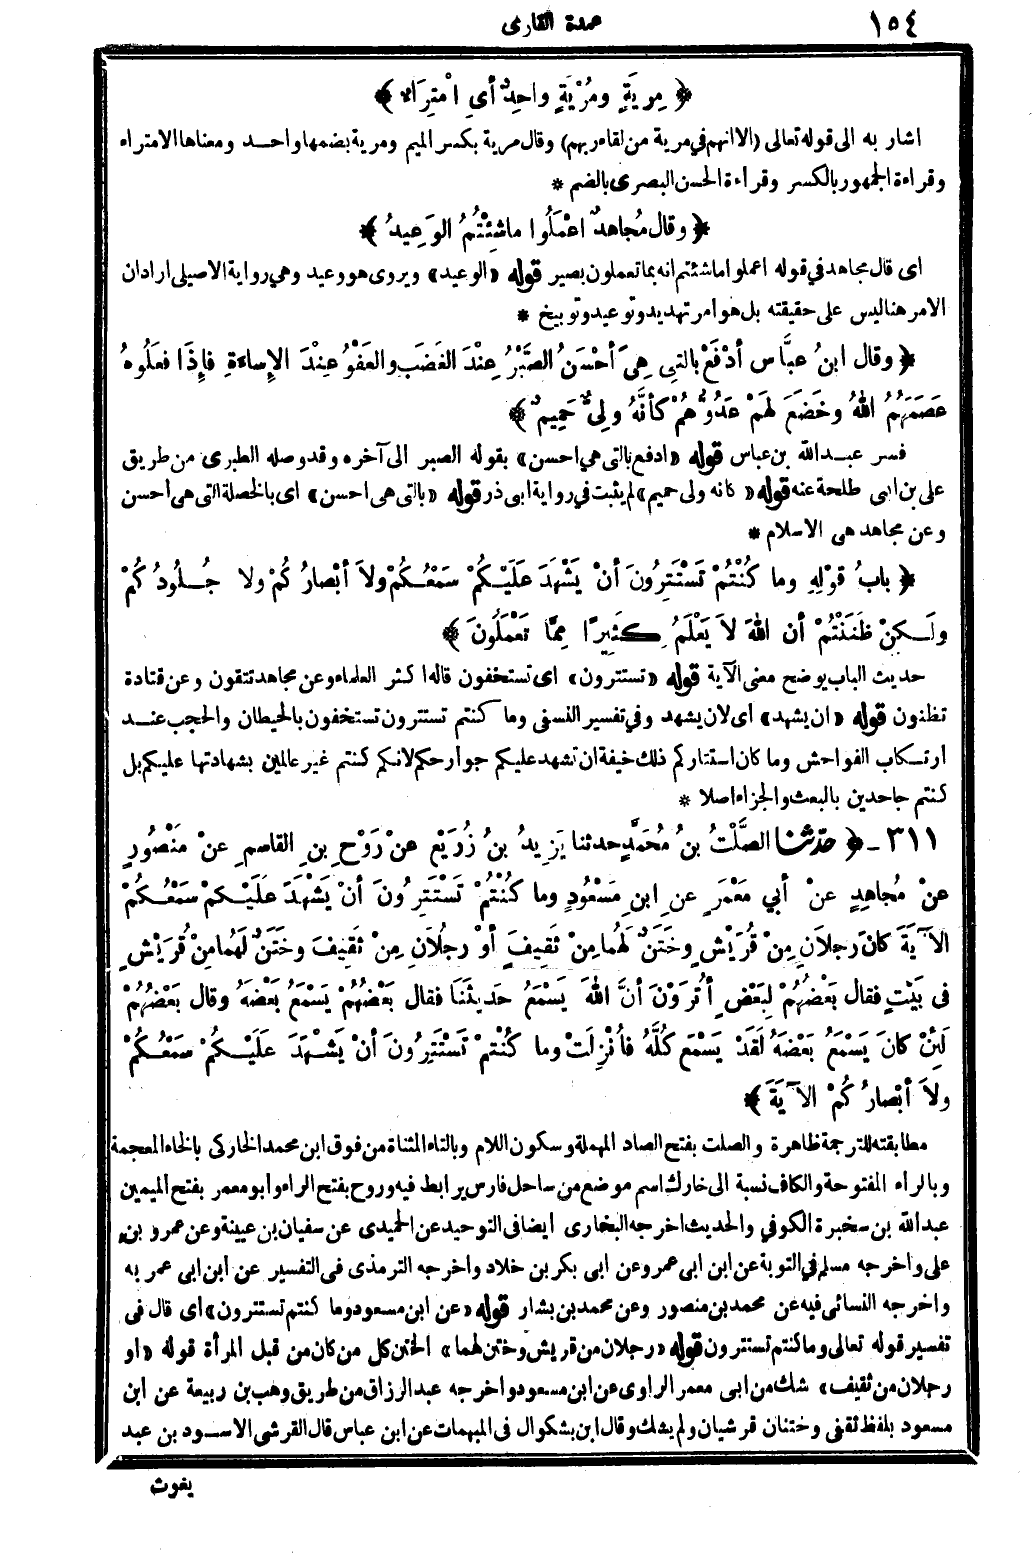 ١٥٤
عمدة القارى
﴿ مِرْيَةٍ ومُرْيَةٍ واحِدٌ أىِ امْتِرَاءٌ ﴾
اشار به الى قوله تعالى (الا انهم في مرية من لقاء ربهم) وقال مرية بكسر الميم ومرية بضمها واحد ومعناها الامتراء
وقراءة الجمهور بالكسر وقراءة الحسن البصرى بالضم *
﴿ وقال مُجاهِدٌ اعْمَلُوا ماشِئْتُمُ الوَعِيدُ ﴾
اى قال مجاهد في قوله اعملوا ماشئتم انه بما تعملون بصير قوله «الوعيد» ويروى هو وعيد وهي رواية الاصيلى ارادان
الامر هنا ليس على حقيقته بل هو امر تهديد وتوعيد وتوبيخ *
﴿ وقال ابنُ عبَّاسٍ أدْفَعْ بالتِي هِيَ أحْسَنُ الصَّبْرُ عِنْدَ الغَضَبِ والعَفْوُ عِنْدَ الإساءَةِ فإذَا فعَلُوهُ
عَصَمَهُمُ اللهُ وخَضَعَ لَهُمْ عَدُوُّهُمْ كأنَّهُ ولِيٌّ حَمِيمٌ ﴾
فسر عبد الله بن عباس قوله «ادفع بالتى هي احسن» بقوله الصبر الى آخره وقدوصله الطبرى من طريق
على بن ابى طلحة عنه قوله «كانه ولى حميم» لم يثبت في رواية ابى ذر قوله «بالتى هى احسن» اى بالخصلة التى هى احسن
وعن مجاهد هى الاسلام *
﴿ بابُ قوْلِهِ وما كُنْتُمْ تَسْتَتِرُونَ أنْ يَشْهَدَ عَلَيْكُمْ سَمْعُكُمْ ولاَ أبْصارُكُمْ ولا جُلُودُكُمْ
ولَكِنْ ظَنَنْتُمْ أن اللهَ لاَ يَعْلَمُ كَثِيرًا مِمَّا تَعْمَلُونَ ﴾
حديث الباب يوضح معنى الآية قوله «تستترون» اى تستخفون قاله اكثر العلماء وعن مجاهد تتقون وعن قتادة
تظنون قوله «ان يشهد» أى لان يشهد وفي تفسير النسفى وما كنتم تستترون تستخفون بالحيطان والحجب عند
ارتكاب الفواحش وما كان استتاركم ذلك خيفة ان تشهد عليكم جوارحكم لانكم كنتم غير عالمين بشهادتها عليكم بل
كنتم جاحدين بالبعث والجزاء اصلا *
٣١١ - ﴿ حدّثنا الصَّلْتُ بنُ مُحَمَّدٍ حدثنا يَزِيدُ بنُ زُرَيْعٍ عنْ رَوْحِ بنِ القاسِمِ عنْ مَنْصُورٍ
عنْ مُجاهِدٍ عنْ أبي مَعْمَرٍ عنِ ابنِ مَسْعُودٍ وما كُنْتُمْ تَسْتَتِرُونَ أنْ يَشْهَدَ عَلَيْكمْ سَمْعُكُمْ
الآيَةَ كانَ رجلاَنِ مِنْ قُرَيْشٍ وخَتَنٌ لَهُما مِنْ ثَقِيفَ أوْ رجُلاَنِ مِنْ ثَقِيفَ وخَتَنٌ لَهُما مِنْ قُرَيْشٍ
فى بَيْتٍ فقال بَعْضُهُمْ لِبَعْضٍ أتُرَوْنَ أنَّ اللهَ يَسْمَعُ حَدِيثَنَا فقال بَعْضُهُمْ يَسْمَعُ بَعْضَهُ وقال بَعْضُهُمْ
لَئِنْ كانَ يَسْمَعُ بَعْضَهُ لَقَدْ يَسْمَعُ كُلَّهُ فأُنْزِلَتْ وما كُنْتُمْ تَسْتَتِرُونَ أنْ يَشْهَدَ عَلَيْكُمْ سَمْعُكُمْ
ولاَ أبْصارُكُمْ الآيَةَ ﴾
مطابقته للترجمة ظاهرة والصلت بفتح الصاد المهملة وسكون اللام وبالتاء المثناة من فوق ابن محمد الخاركى بالخاء المعجمة
وبالراء المفتوحة والكاف نسبة الى خارك اسم موضع من ساحل فارس يرابط فيه وروح بفتح الراء وابو معمر بفتح الميمين
عبد الله بن سخبرة الكوفي والحديث اخرجه البخارى ايضا فى التوحيد عن الحميدى عن سفيان بن عيينة وعن عمرو بن
على واخرجه مسلم في التوبة عن ابن ابى عمرو عن ابى بكر بن خلاد واخرجه الترمذى فى التفسير عن ابن ابى عمر به
واخرجه النسائى فيه عن محمد بن منصور وعن محمد بن بشار قوله «عن ابن مسعود وما كنتم تستترون» اى قال فى
تفسير قوله تعالى وما كنتم تستترون قوله «رجلان من قريش وختن لهما» الختن كل من كان من قبل المرأة قوله «او
رجلان من ثقيف» شك من ابى معمر الراوى عن ابن مسعود واخرجه عبد الرزاق من طريق وهب بن ربيعة عن ابن
مسعود بلفظ ثقفى وختنان قرشيان ولم يشك وقال ابن بشكوال فى المبهمات عن ابن عباس قال القرشى الاسود بن عبد
يغوث